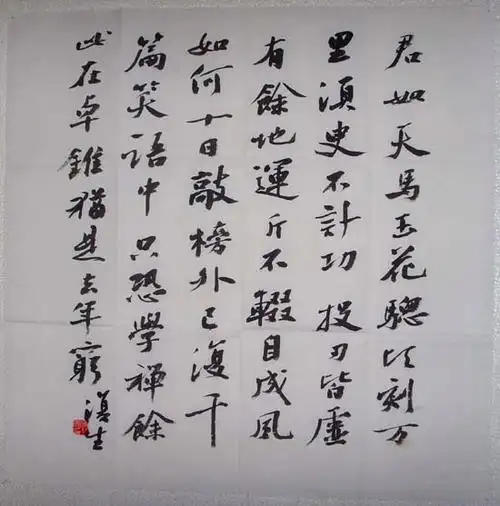 君如天馬玉花骢顷刻万
里湏臾不計功 投刃皆虛
有餘地運斤不輟自成風
如何十日敲榜外已復千
篇笑語中 只恐學禪餘
此在卓錐猶是去年窮